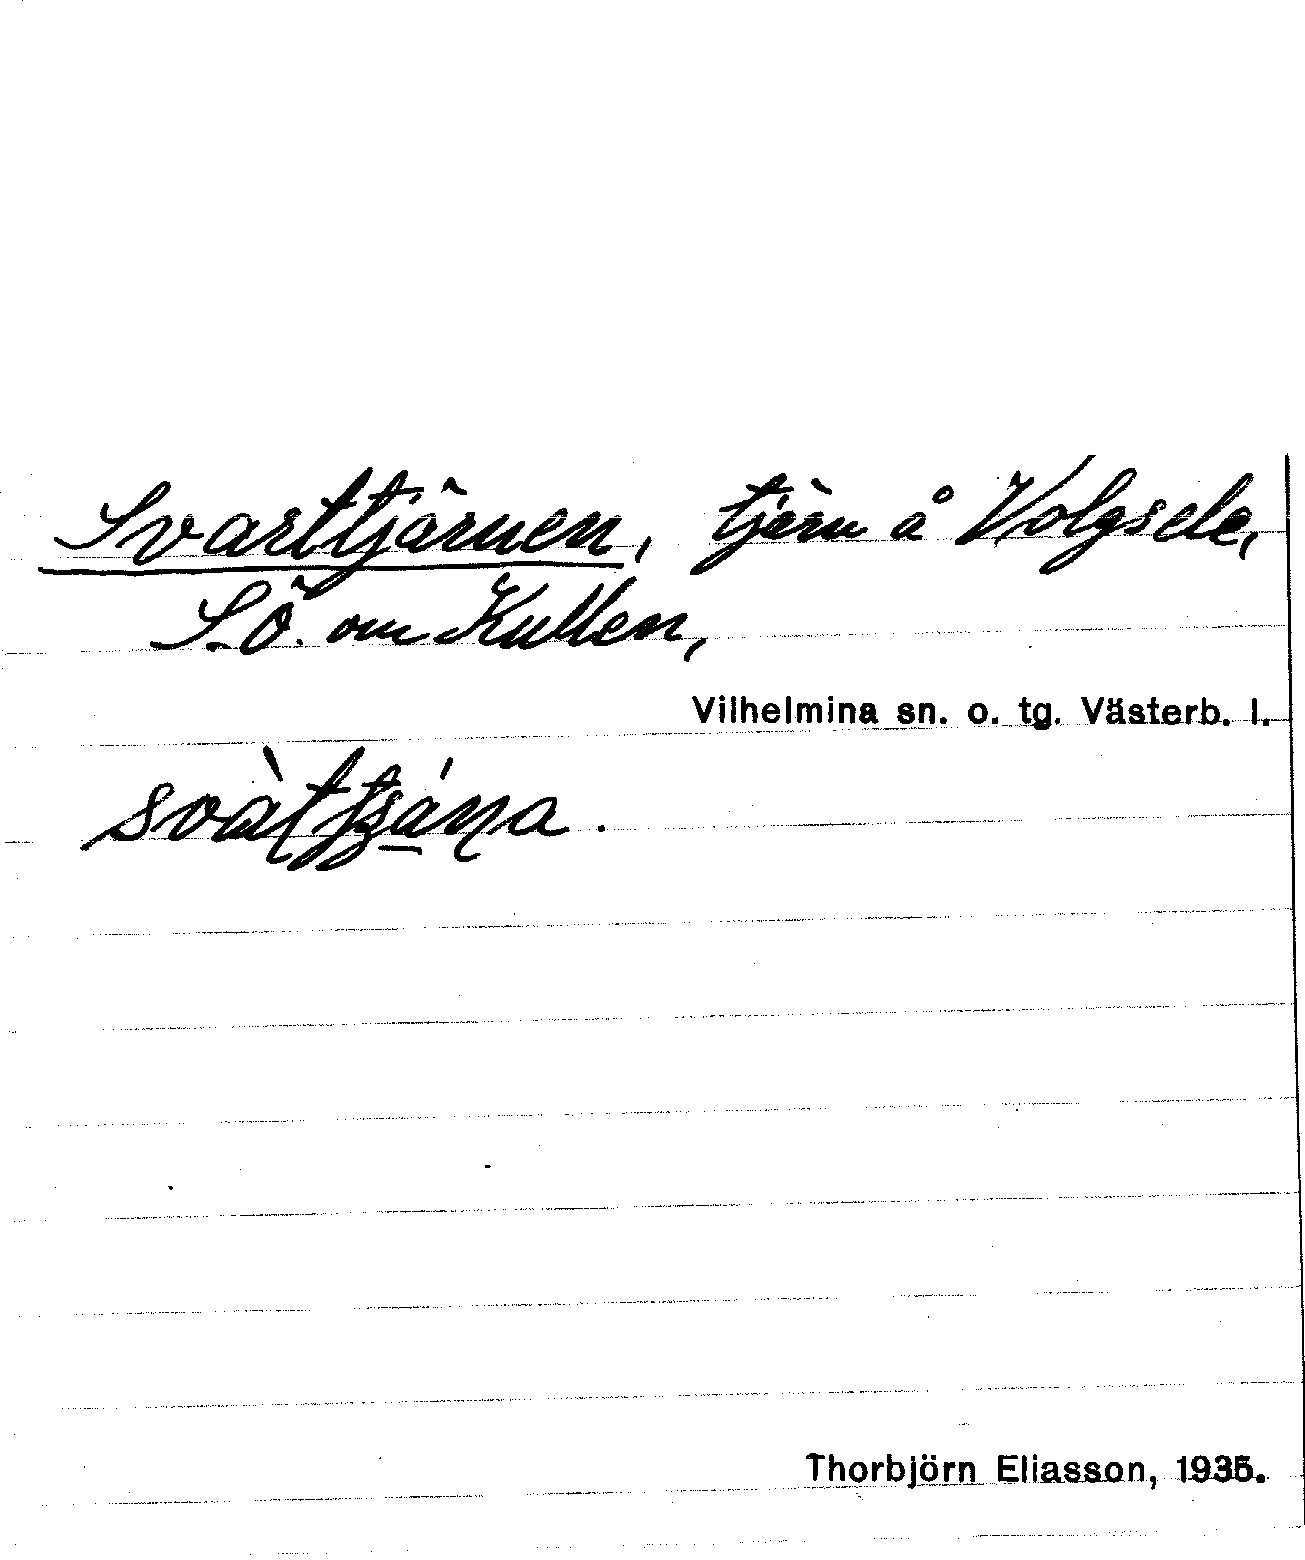 Svarttjärnen, tjärn å Volgsele,
S.Ö. om Kullen,
Vilhelmina sn. o. tg. Västerb. l.
Thorbjörn Eliasson, 1935.